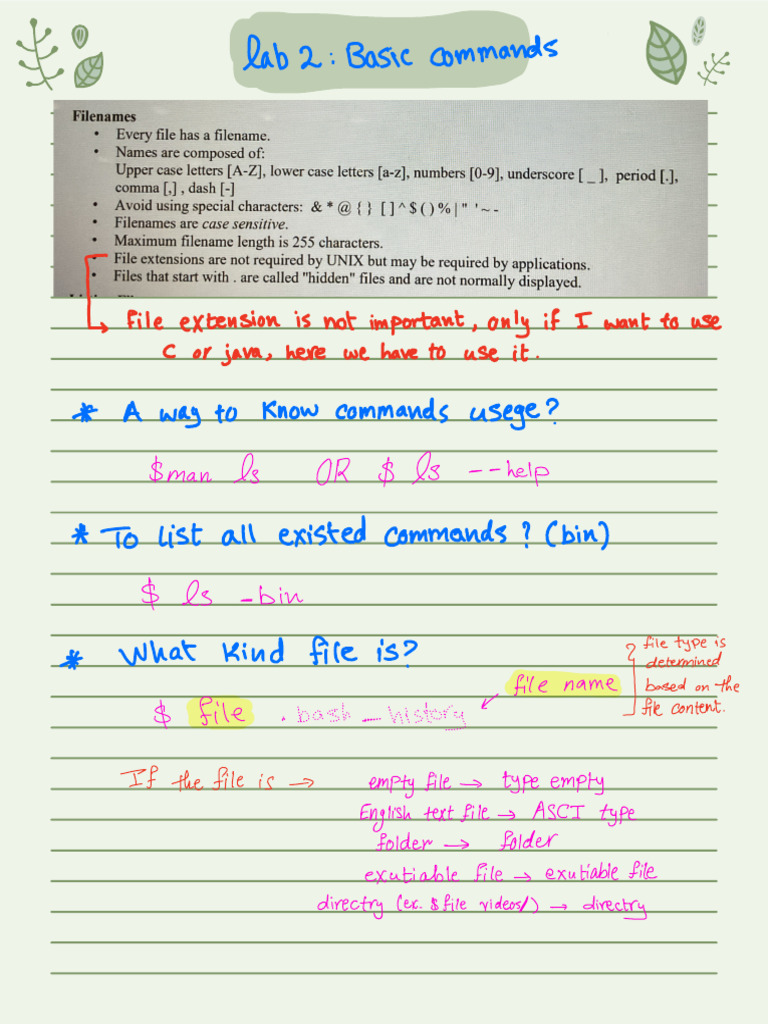 lab 2: Basic commands
Filenames
• Every file has a filename.
• Names are composed of:
Upper case letters [A-Z], lower case letters [a-z], numbers [0-9], underscore [ _ ], period [.],
comma [,] , dash [-]
• Avoid using special characters: & * @ { } [ ] ^ $ ( ) % | " ' ~ -
• Filenames are case sensitive.
• Maximum filename length is 255 characters.
• File extensions are not required by UNIX but may be required by applications.
• Files that start with . are called "hidden" files and are not normally displayed.
File extension is not important, only if I want to use
C or java, here we have to use it.
* A way to Know commands usege?
$man ls OR $ ls --help
* To list all existed commands? (bin)
$ ls -bin
* What Kind file is?
file type is
determined
based on the
file content.
file name
$ file .bash_history
If the file is → empty file → type empty
English text file → ASCI type
folder → folder
exutiable file → exutiable file
directry (ex. $file videos/) → directry